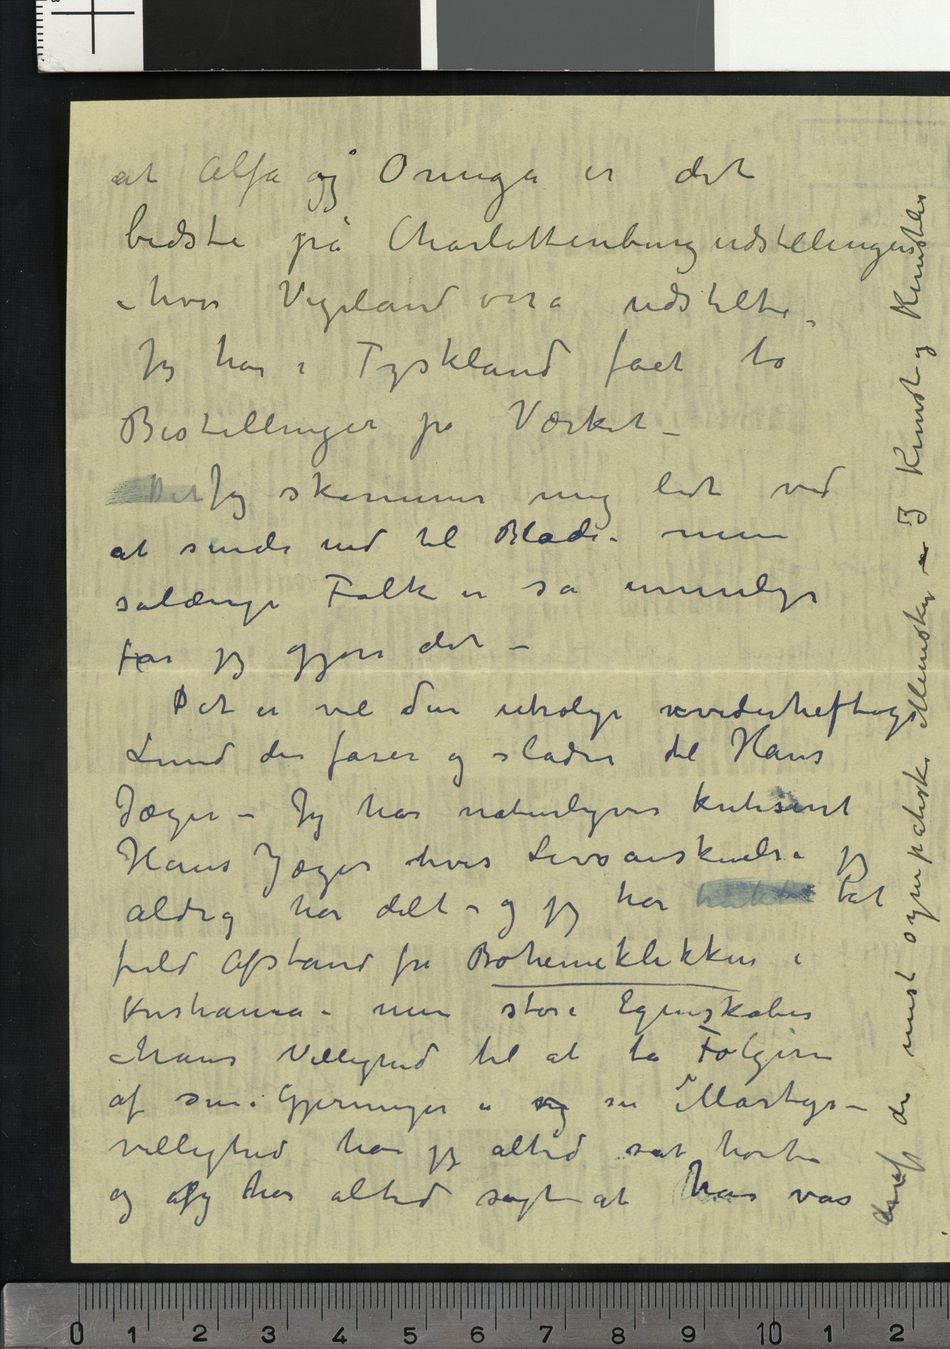 at Alfa og Omega er det
bedste på Charlottenburgudstillingen
– hvor Vigeland var udstillte.
Jeg har i Tyskland fåt to
Bestillinger på Værket –
Det Jeg skammer mig lidt ved
at sende ud til Blade – men
salænge Folk er så umulige
får jeg gjøre det –
Det er vel den utrolige vederheftige
Lund der farer og sladrer til Hans
Jæger – Jeg har naturligvis kritiseret
Hans Jæger hvis Livsanskuelse jeg
aldrig har delt – og jeg har tat
fuld Afstand fra Bohemeklikken i
Kristiania – men store Egenskaber
– hans Villighed til at ta Følgerne
af sine Gjerninger – og sin Martyr-
villighed har jeg altid sat høit –
og Jeg har altid sagt at han var
af de mest sympatiske Mennesker – I Kunst og Kunstler